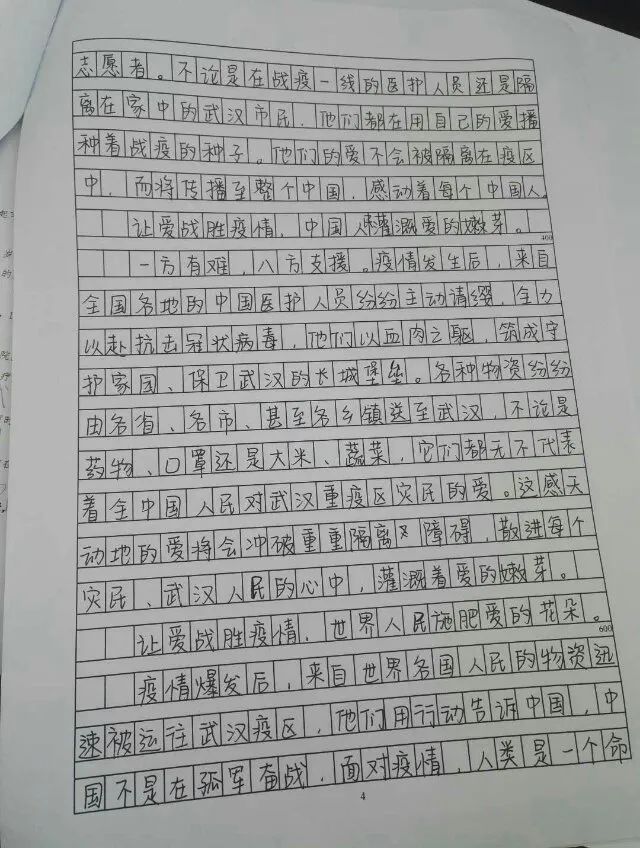 志愿者。不论是在战疫一线的医护人员还是隔
离在家中的武汉市民，他们都在用自己的爱播
种着战疫的种子。他们的爱不会被隔离在疫区
中，而将传播至整个中国，感动着每个中国人。
让爱战胜疫情，中国人民灌溉爱的嫩芽。
400
一方有难，八方支援。疫情发生后，来自
全国各地的中国医护人员纷纷主动请缨，全力
以赴抗击冠状病毒，他们以血肉之躯，筑成守
护家国、保卫武汉的长城堡垒。各种物资纷纷
由各省、各市、甚至各乡镇送至武汉，不论是
药物、口罩还是大米、蔬菜，它们都无不代表
着全中国人民对武汉重疫区灾民的爱。这感天
动地的爱将会冲破重重隔离障碍，散进每个
灾民、武汉人民的心中，灌溉着爱的嫩芽。
让爱战胜疫情，世界人民施肥爱的花朵。
600
疫情爆发后，来自世界各国人民的物资迅
速被运往武汉疫区，他们用行动告诉中国，中
国不是在孤军奋战，面对疫情，人类是一个命
4